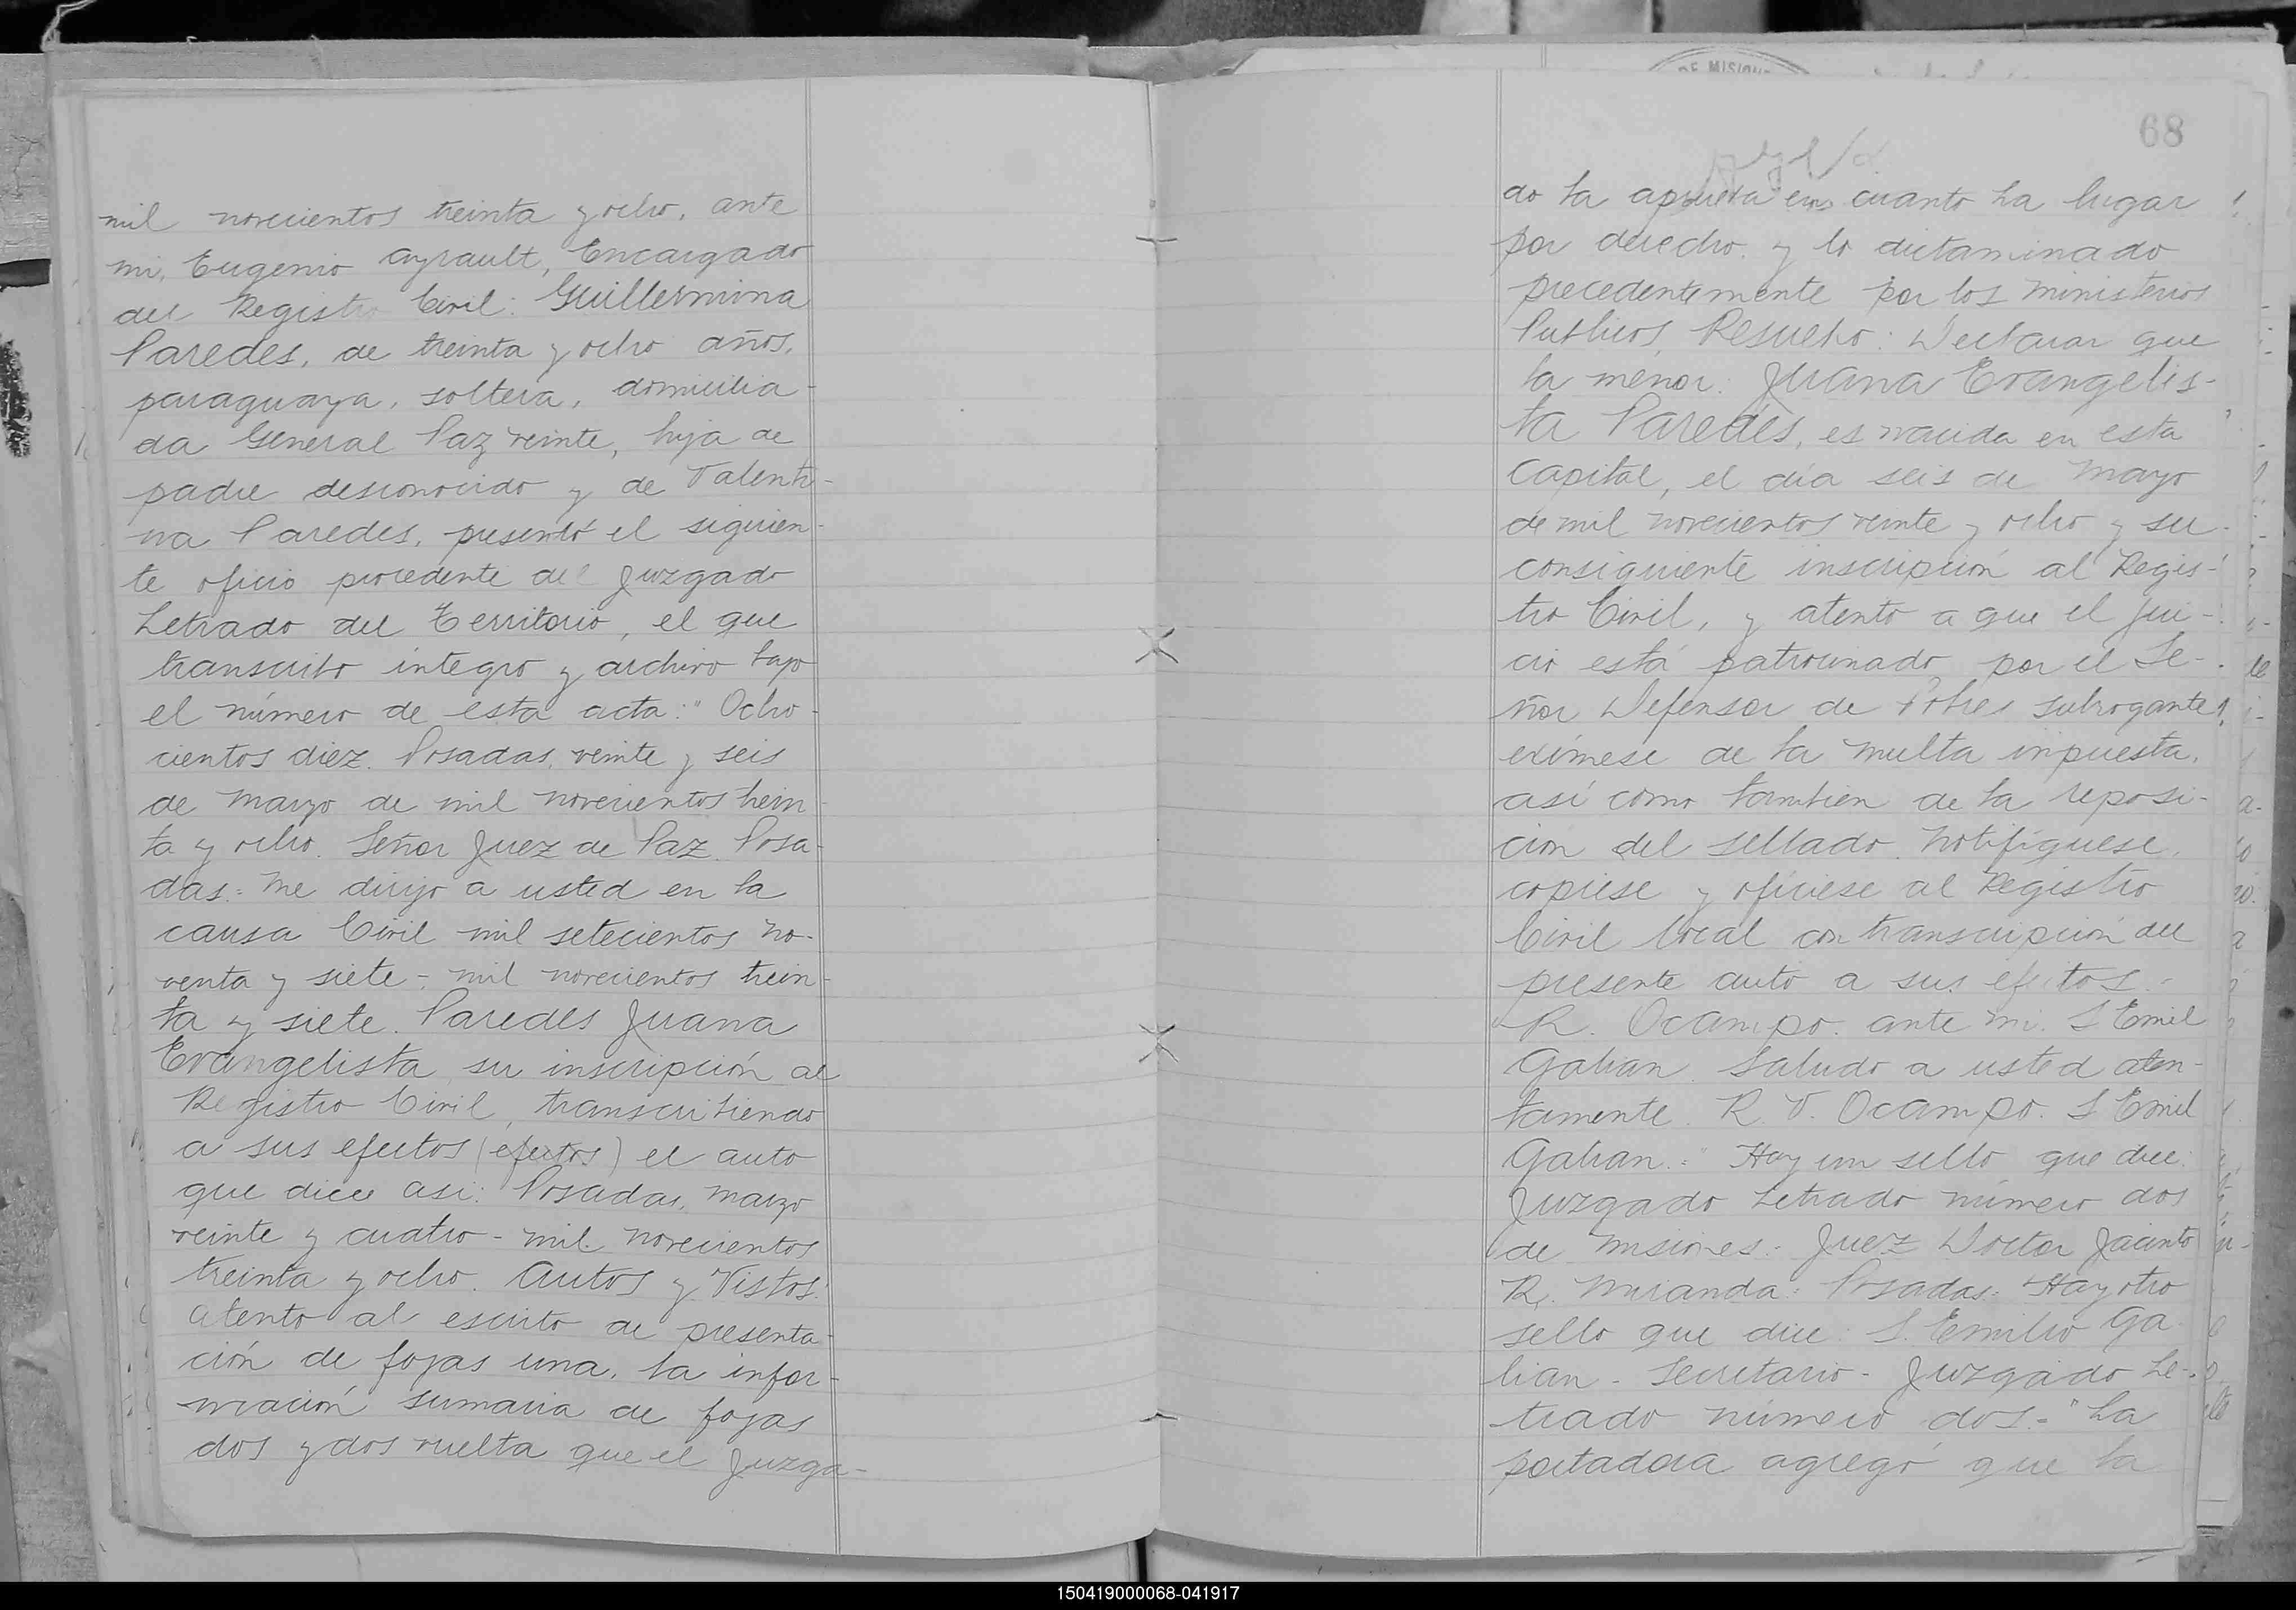 mil novecientos treinta y ocho, ante
mi, Eugenio Ayrault, Encargado
del Registro Civil: Guillermina
Paredes, de treinta y ocho años,
paraguaya, soltera, domicilia-
da General Paz veinte, hija de
padre desconocido y de Valenti-
na Paredes, presentó el siguien-
te oficio procedente del Juzgado
Letrado del Territorio, el que
transcribo íntegro y archivo bajo
el número de esta acta: "Ocho-
cientos diez. Posadas, veinte y seis
de Marzo de mil novecientos trein-
ta y ocho. Señor Juez de Paz. Posa-
das: Me dirijo a usted en la
causa Civil mil setecientos no-
venta y siete - mil novecientos trein-
ta y siete. Paredes Juana
Evangelista su inscripción al
Registro Civil, transcribiendo
a sus efectos (efectos) el auto
que dice asi: Posadas, Marzo
veinte y cuatro - mil novecientos
treinta y ocho. Autos y Vistos:
Atento al escrito de presenta-
ción de fojas una, la infor-
mación sumaria de fojas
dos y dos vuelta que el Juzga-
68
do la aprueba en cuanto ha lugar
por derecho y lo dictaminado
precedentemente por los Ministerios
Publicos, Resuelvo: Declarar que
la menor: Juana Evangelis-
ta Paredes, es nacida en esta
Capital, el día seis de Mayo
de mil novecientos veinte y ocho y su
consiguiente inscripción al Regis-
tro Civil, y atento a que el jui-
cio está patrocinado por el Se-
ñor Defensor de Pobres subrogante
exímese de la multa inpuesta,
así como tambien de la reposi-
ción del sellado. Notifíquese,
copiese y ofíciese al Registro
Civil local con transcripción del
presente auto a sus efectos.-
R. Ocampo. ante mi. S Emil
Galian. Saludo a usted aten-
tamente. R. V. Ocampo. S Emil
Galian.=" Hay un sello que dice:
Juzgado Letrado número dos
de Misiones - Juez Doctor Jacinto
R. Miranda = Posadas = Hay otro
sello que dice: S. Emilio Ga-
lian - Secretario - Juzgado Le-
trado número dos.=" La
portadora agregó que la
DE MISION
150419000068-041917